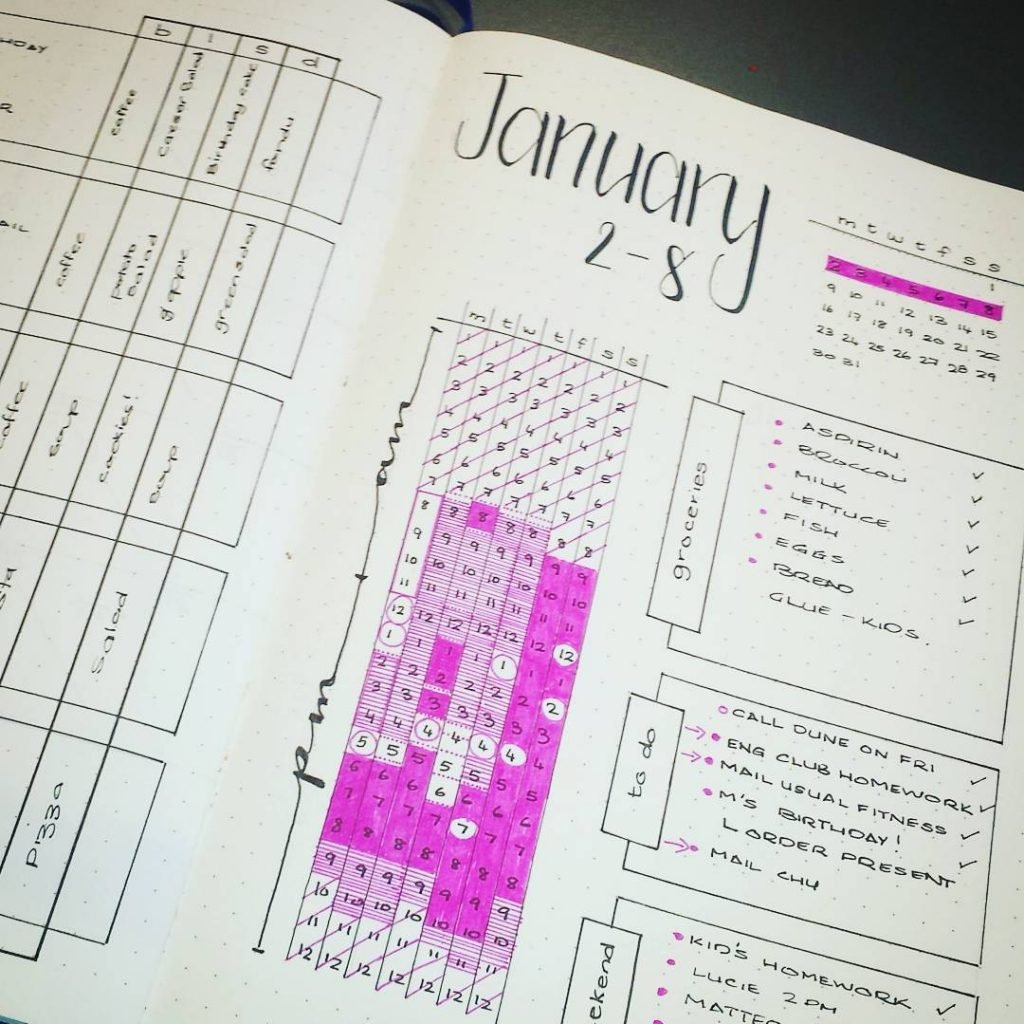 HDAY
R
AIL
b i s d
coffee
Caesar Salad
Birthday cake
fondu
coffee
potato
salad
apple
green salad
coffee
soup
cookies!
soup
Salad
pizza
January
2-8
m t w t f s s
1
2 3 4 5 6 7 8
9 10 11 12 13 14 15
16 17 18 19 20 21 22
23 24 25 26 27 28 29
30 31
m t w t f s s
am
pm
1 1 1 1 1 1 1
2 2 2 2 2 2 2
3 3 3 3 3 3 3
4 4 4 4 4 4 4
5 5 5 5 5 5 5
6 6 6 6 6 6 6
7 7 7 7 7 7 7
8 8 8 8 8 8 8
9 9 9 9 9 9 9
10 10 10 10 10 10 10
11 11 11 11 11 11 11
12 12 12 12 12 12 12
1 1 1 1 1 1 1
2 2 2 2 2 2 2
3 3 3 3 3 3 3
4 4 4 4 4 4 4
5 5 5 5 5 5 5
6 6 6 6 6 6 6
7 7 7 7 7 7 7
8 8 8 8 8 8 8
9 9 9 9 9 9 9
10 10 10 10 10 10 10
11 11 11 11 11 11 11
12 12 12 12 12 12 12
groceries
ASPIRIN
BROCCOLI
MILK
LETTUCE
FISH
EGGS
BREAD
GLUE - KIDS.
to do
CALL DUNE ON FRI
ENG CLUB HOMEWORK
MAIL USUAL FITNESS
M'S BIRTHDAY!
ORDER PRESENT
MAIL CHY
ekend
KID'S HOMEWORK
LUCIE 2PM
MATTE